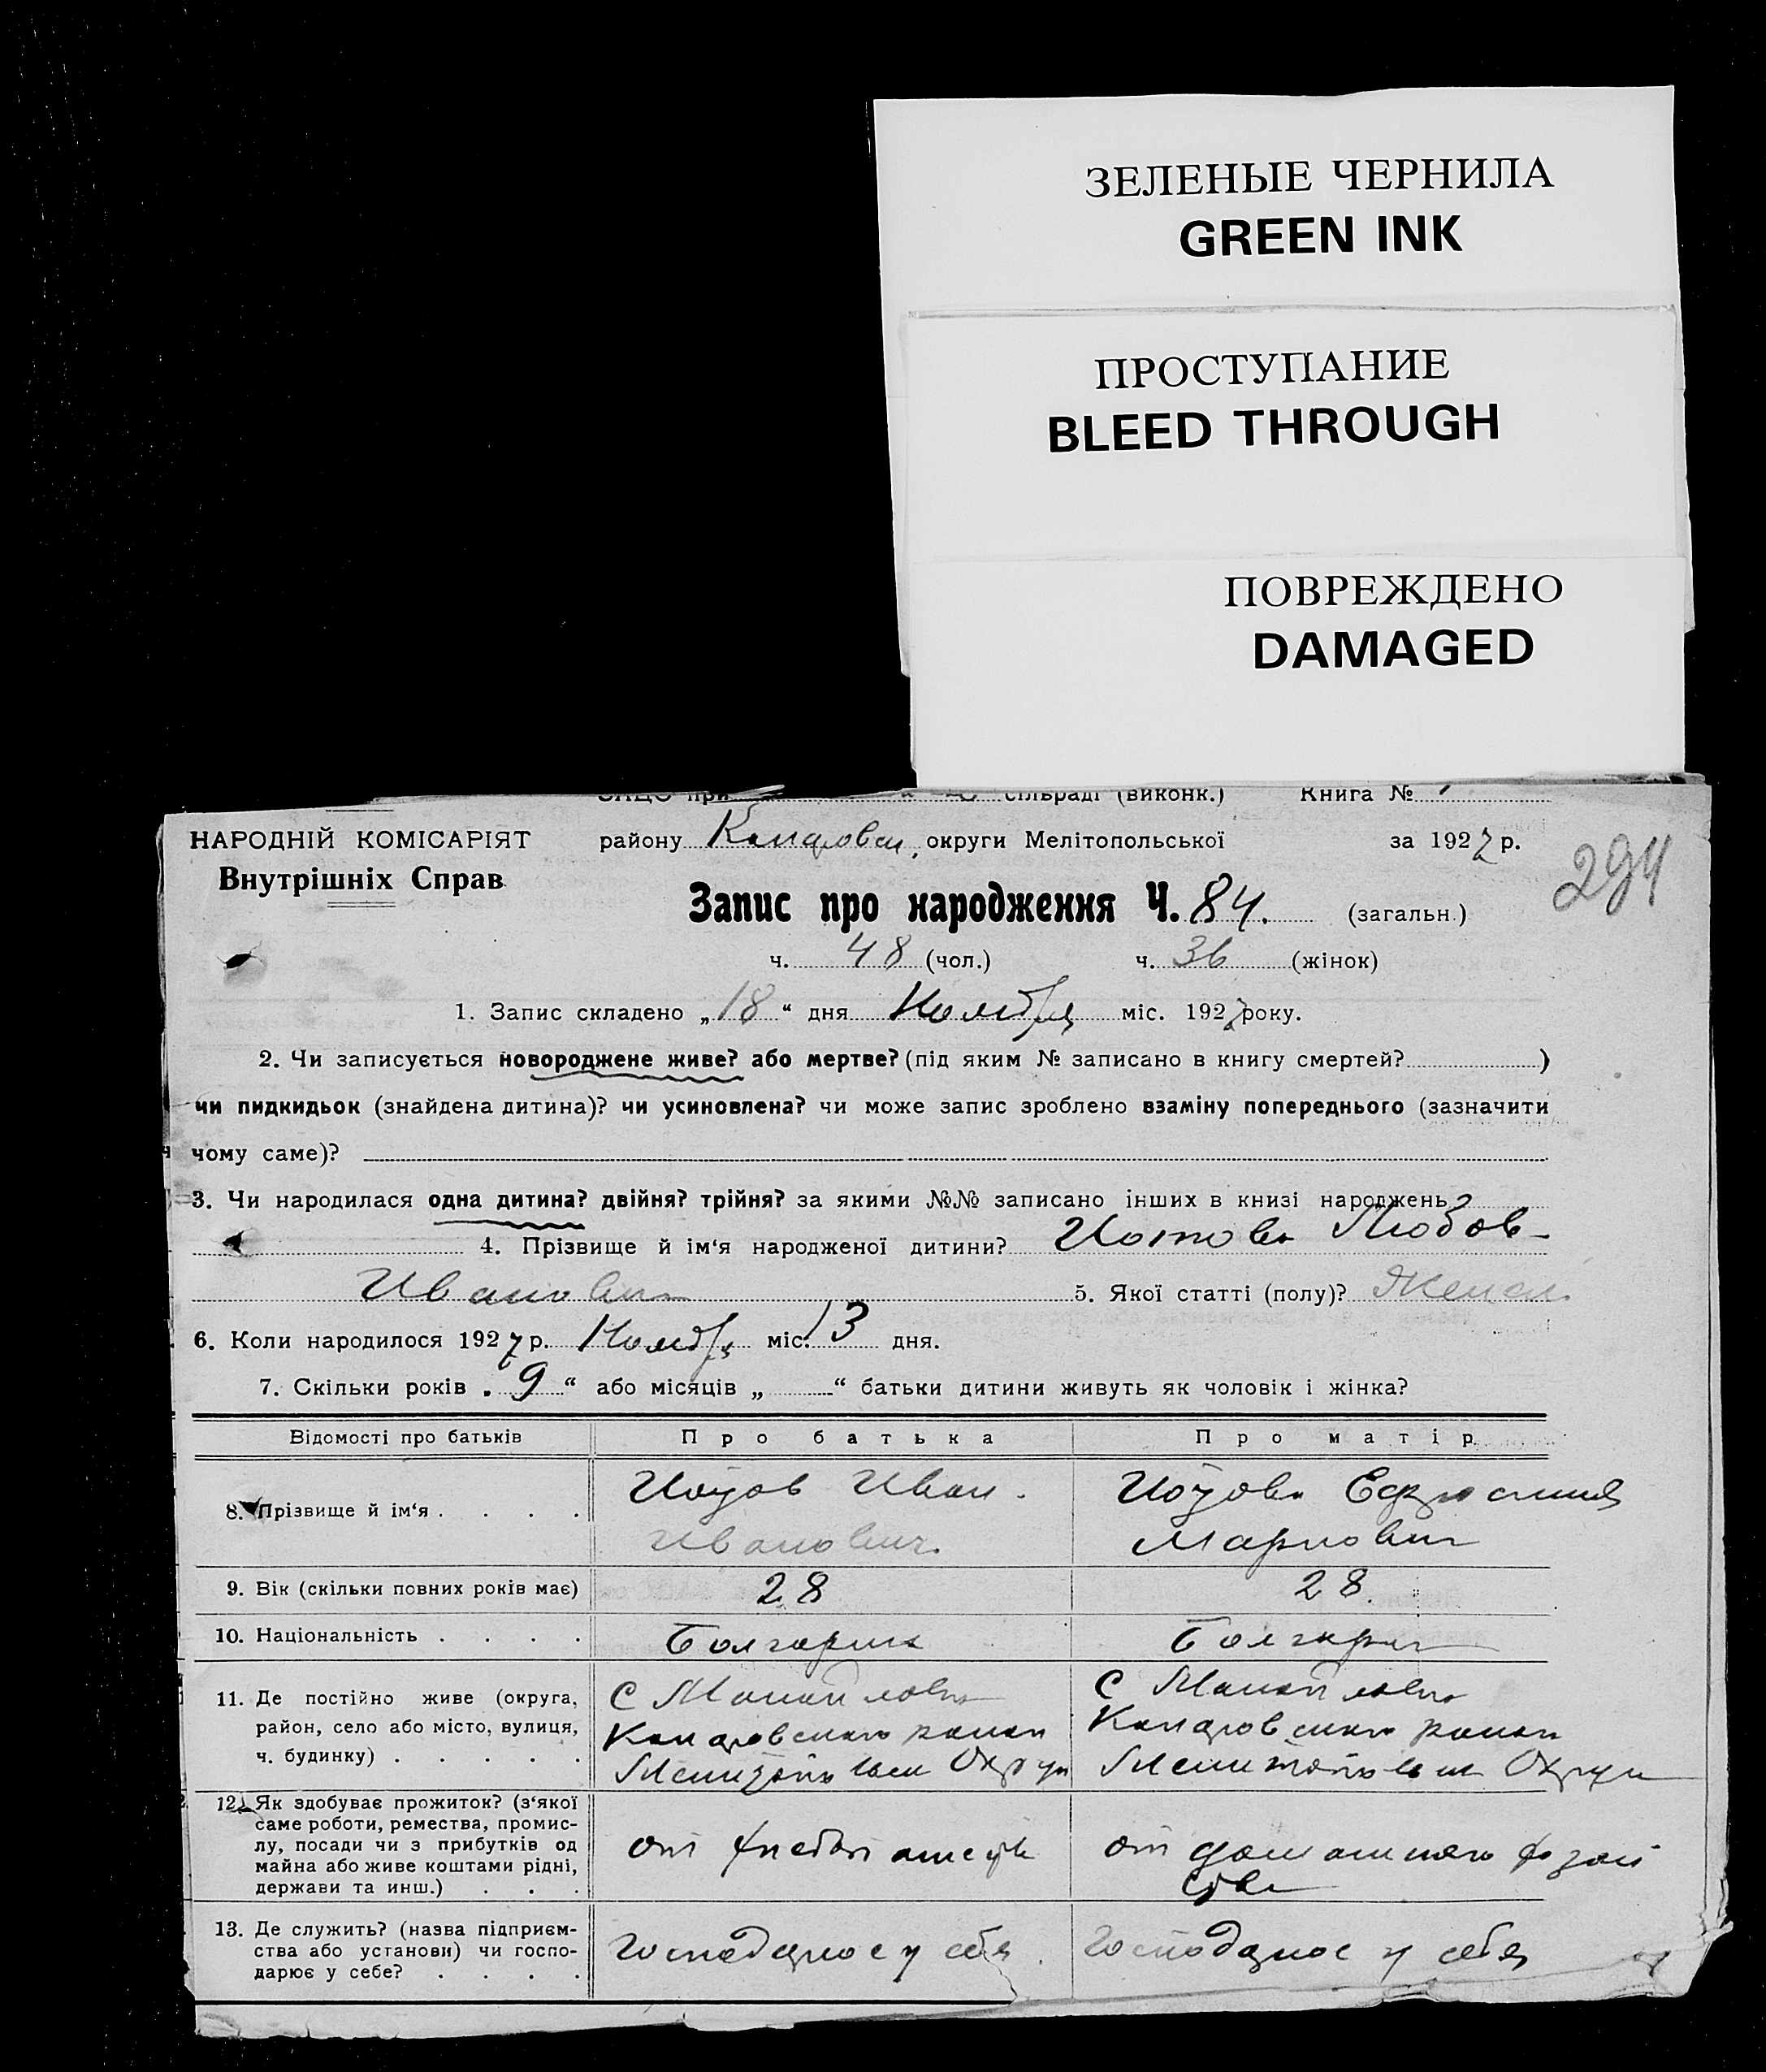 ЗЕЛЕНЫЕ ЧЕРНИЛА
GREEN INK
ПРОСТУПАНИЕ
BLEED THROUGH
ПОВРЕЖДЕНО
DAMAGED
при сільраді (виконк.) Книга №
НАРОДНІЙ КОМІСАРІЯТ
району округи Мелітопольської за 1927 р.
294
Внутрішніх Справ
Запис про народження Ч. 84. (загальн.)
ч. 48 (чол.) ч. 36 (жінок)
1. Запис складено „18“ дня Ноября міс. 1927 року.
2. Чи записується новороджене живе? або мертве? (під яким № записано в книгу смертей? )
чи пидкидьок (знайдена дитина)? чи усиновлена? чи може запис зроблено взаміну попереднього (зазначити
чому саме)?
3. Чи народилася одна дитина? двійня? трійня? за якими №№ записано інших в книзі народжень?
4. Прізвище й ім'я народженої дитини? Любов
Ивановн 5. Якої статті (полу)? Женск.
6. Коли народилося 1927 р. Ноября міс. 13 дня.
7. Скільки років „9“ або місяців „ “ батьки дитини живуть як чоловік і жінка?
Відомості про батьків Про батька Про матір
8. Прізвище й ім'я . . . . Иван. Ефросиния
Иванович. Марковн
9. Вік (скільки повних років має) 28 28.
10. Національність . . . . Болгарин Болгарк
11. Де постійно живе (округа, район, село або місто, вулиця, ч. будинку) . . . . .
С С
район район
Округи Округи
12. Як здобуває прожиток? (з'якої
саме роботи, ремества, промис-
лу, посади чи з прибутків од
майна або живе коштами рідні,
держави та инш.) . . .
от хлебопашеств от домашнего хозяй
ства
13. Де служить? (назва підприєм-
ства або установи) чи госпо-
дарює у себе? . . . .
Господарюе у себя. Господарюе у себя